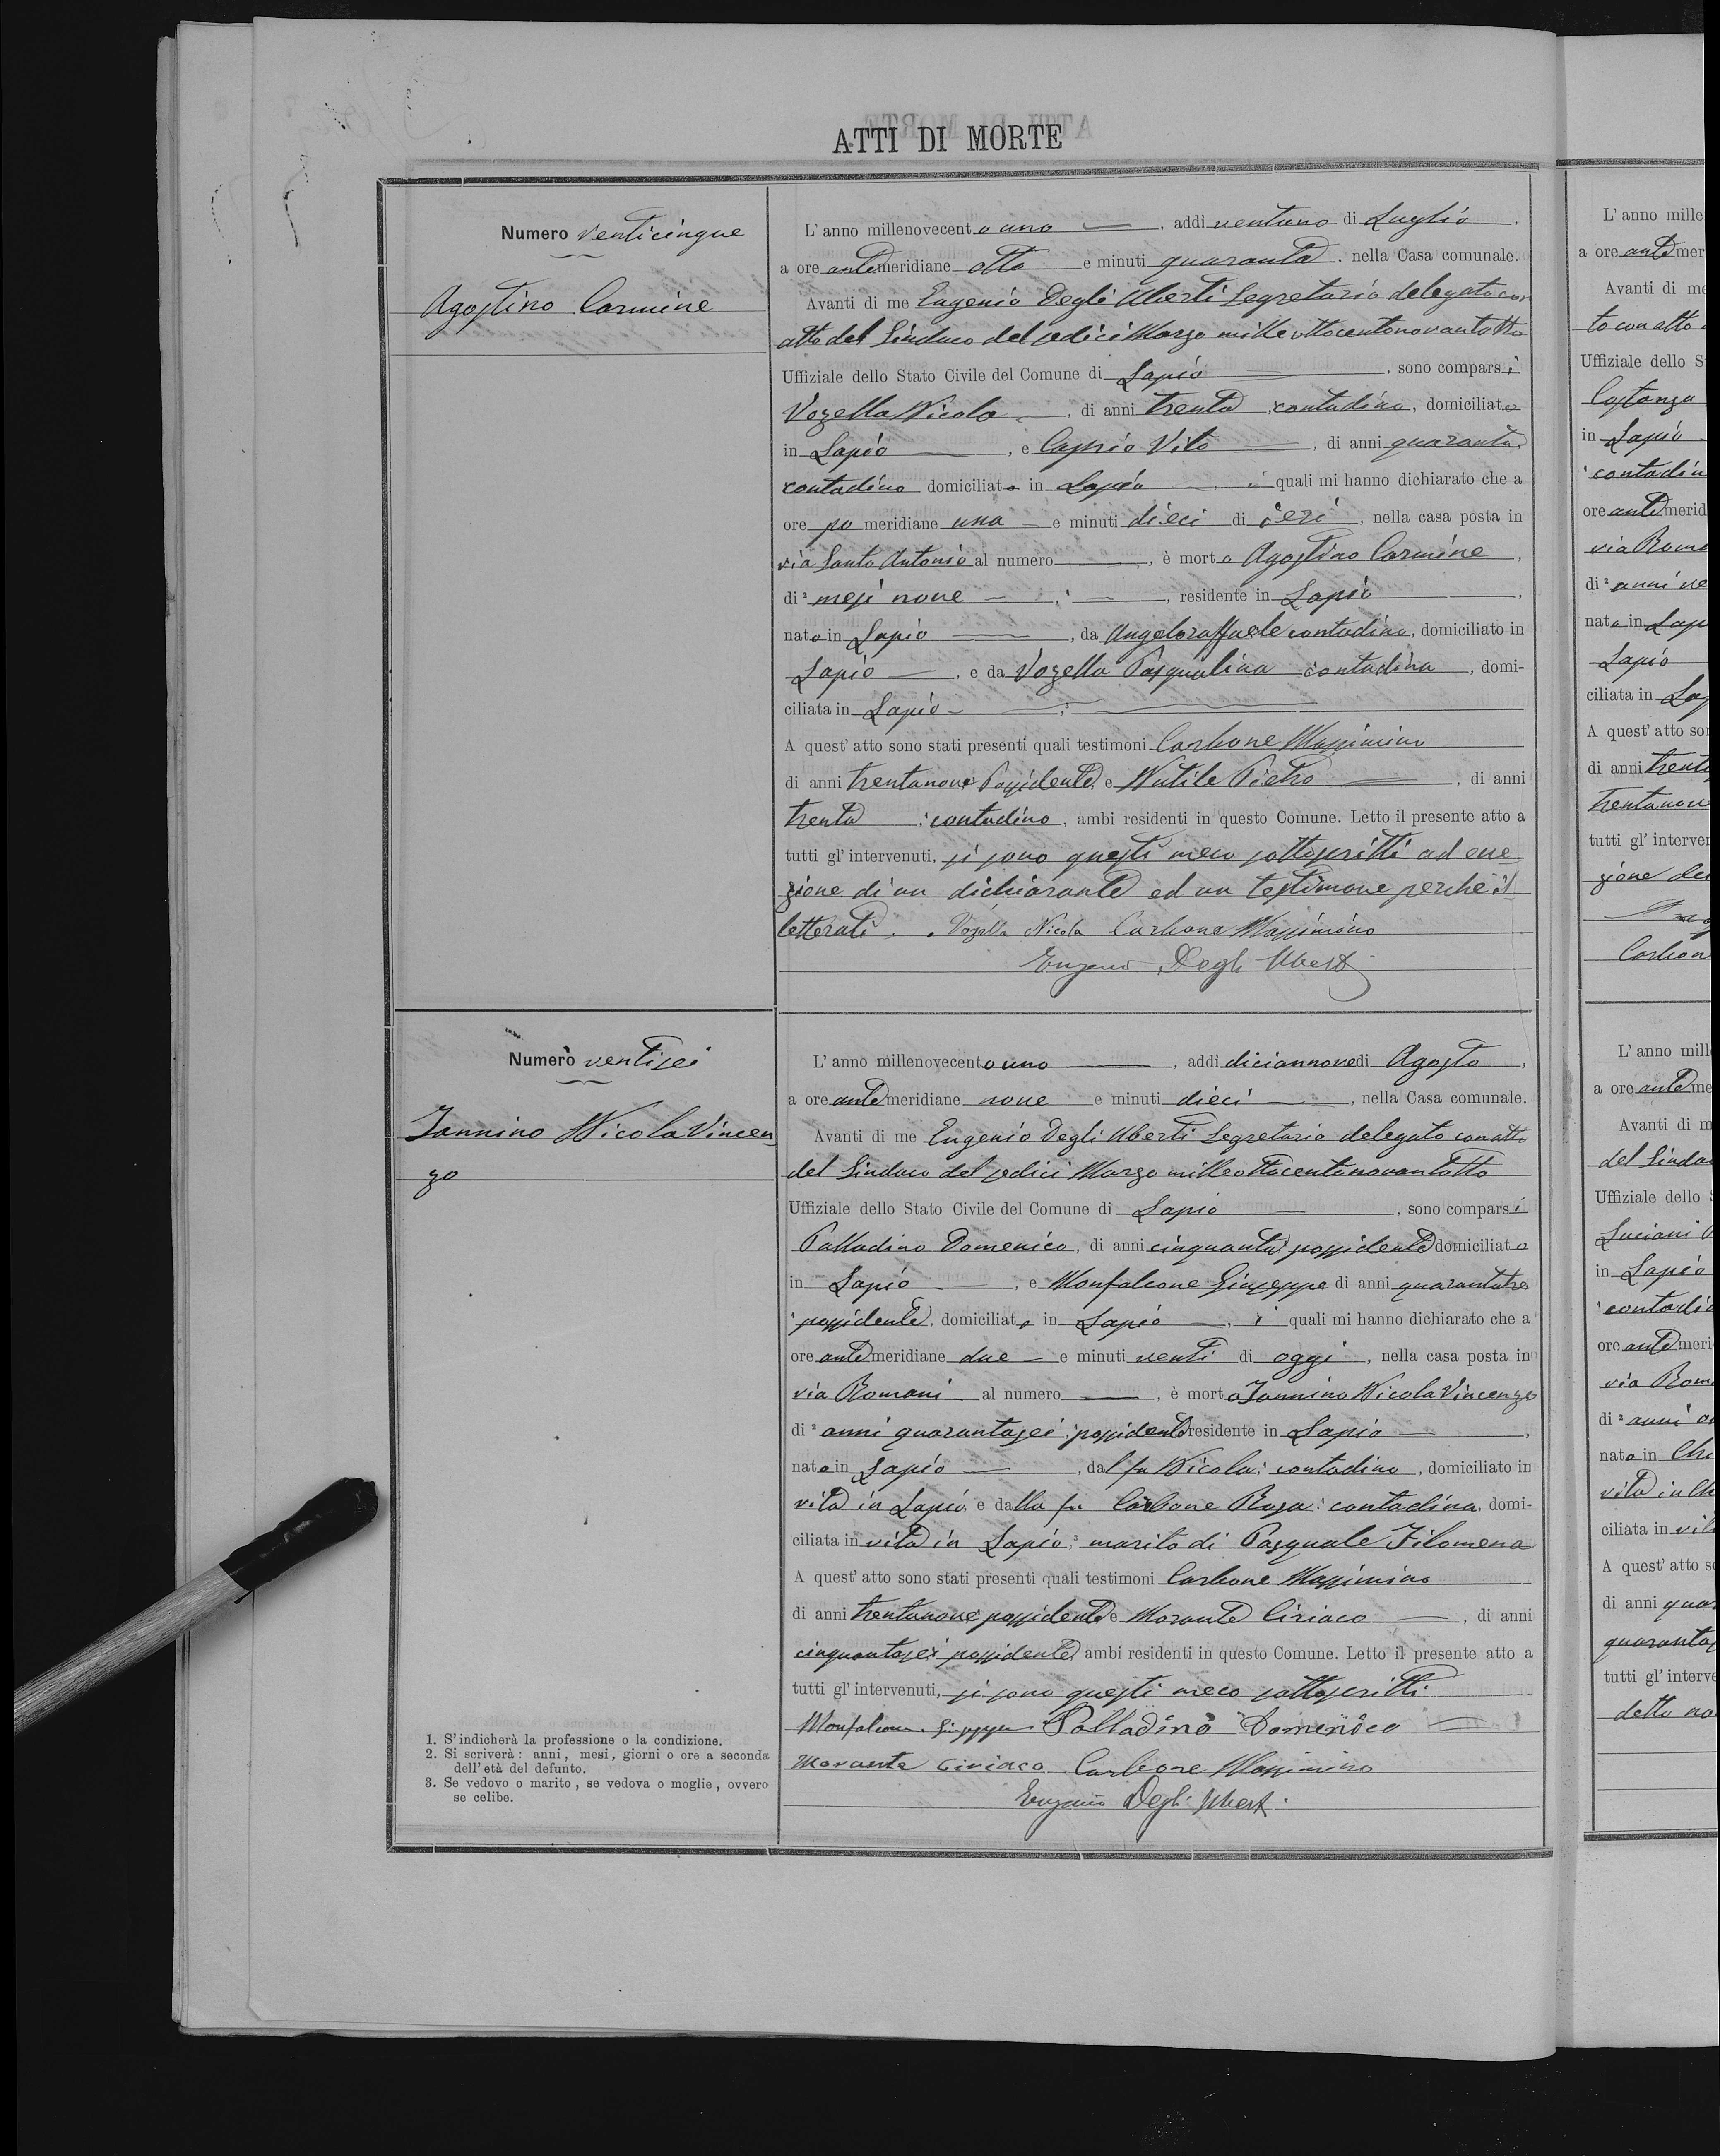 ATTI DI MORTE
Numero venticinque
Agostino Carmine
L'anno millenovecento uno, addi ventuno di Luglio,
a ore antemeridiane otto e minuti quaranta, nella Casa comunale.
Avanti di me Eugenio Degli Uberti Segretario delegato con
atto del Sindaco del sedici Marzo milleottocentonovantotto
Uffiziale dello Stato Civile del Comune di Lapio, sono comparsi
Vozella Nicola, di anni trenta, contadino, domiciliato
in Lapio, e Caprio Vito, di anni quaranta,
contadino domiciliato in Lapio, i quali mi hanno dichiarato che a
ore pomeridiane una e minuti dieci di ieri, nella casa posta in
via Santo Antonio al numero, è morto Agostino Carmine,
di² mesi nove, residente in Lapio,
nato in Lapio, da Angeloraffaele contadino, domiciliato in
Lapio, e da Vozella Pasqualina contadina, domi-
ciliata in Lapio
A quest'atto sono stati presenti quali testimoni Carbone Massimino
di anni trentanove Possidente, e Nutile Pietro, di anni
trenta contadino, ambi residenti in questo Comune. Letto il presente atto a
tutti gl'intervenuti, si sono questi meco sottoscritti ad ecce
zione di un dichiarante ed un testimone perchè il
letterati. Vozella Nicola Carbone Massimino
Eugenio Degli Uberti
Numero ventisei
Iannino Nicola Vincen
zo
L'anno millenovecento uno, addi diciannove di Agosto,
a ore antemeridiane nove e minuti dieci, nella Casa comunale.
Avanti di me Eugenio Degli Uberti Segretario delegato con atto
del Sindaco del sedici Marzo milleottocentonovantotto
Uffiziale dello Stato Civile del Comune di Lapio, sono comparsi
Palladino Domenico, di anni cinquanta, possidente domiciliato
in Lapio, e Monfalcone Giuseppe di anni quarantatre
possidente, domiciliato in Lapio, i quali mi hanno dichiarato che a
ore antemeridiane due e minuti venti di oggi, nella casa posta in
via Romani al numero, è morto Iannino Nicola Vincenzo
di² anni quarantasei, possidente residente in Lapio,
nato in Lapio, dal fu Nicola, contadino, domiciliato in
vita in Lapio, e dalla fu Carbone Rosa, contadina, domi-
ciliata in vita in Lapio, marito di Pasquale Filomena
A quest'atto sono stati presenti quali testimoni Carbone Massimino
di anni trentanove possidente e Morante Ciriaco, di anni
cinquantasei possidente, ambi residenti in questo Comune. Letto il presente atto a
tutti gl'intervenuti, si sono questi meco sottoscritti.
Monfalcone Giuseppe Palladino Domenico
Morante Ciriaco Carbone Massimino
Eugenio Degli Uberti
1. S'indicherà la professione o la condizione.
2. Si scriverà: anni, mesi, giorni o ore a seconda
dell'età del defunto.
3. Se vedovo o marito, se vedova o moglie, ovvero
se celibe.
L'anno mille
a ore antemer
Avanti di me
to con atto
Uffiziale dello S
Costanzo
in Lapio
contadin
ore antemerid
via Roma
di² anni ve
nato in Lap
Lapio
ciliata in Lap
A quest'atto so
di anni trenta
trentanove
tutti gl'interven
zione de
Carbon
L'anno mill
a ore anteme
Avanti di m
del Sinda
Uffiziale dello
Luciani
in Lapio
contadi
ore antemeri
via Roma
di² anni
nato in Ch
vita in Ch
ciliata in vit
A quest'atto so
di anni qua
quaranta
tutti gl'interve
detto no